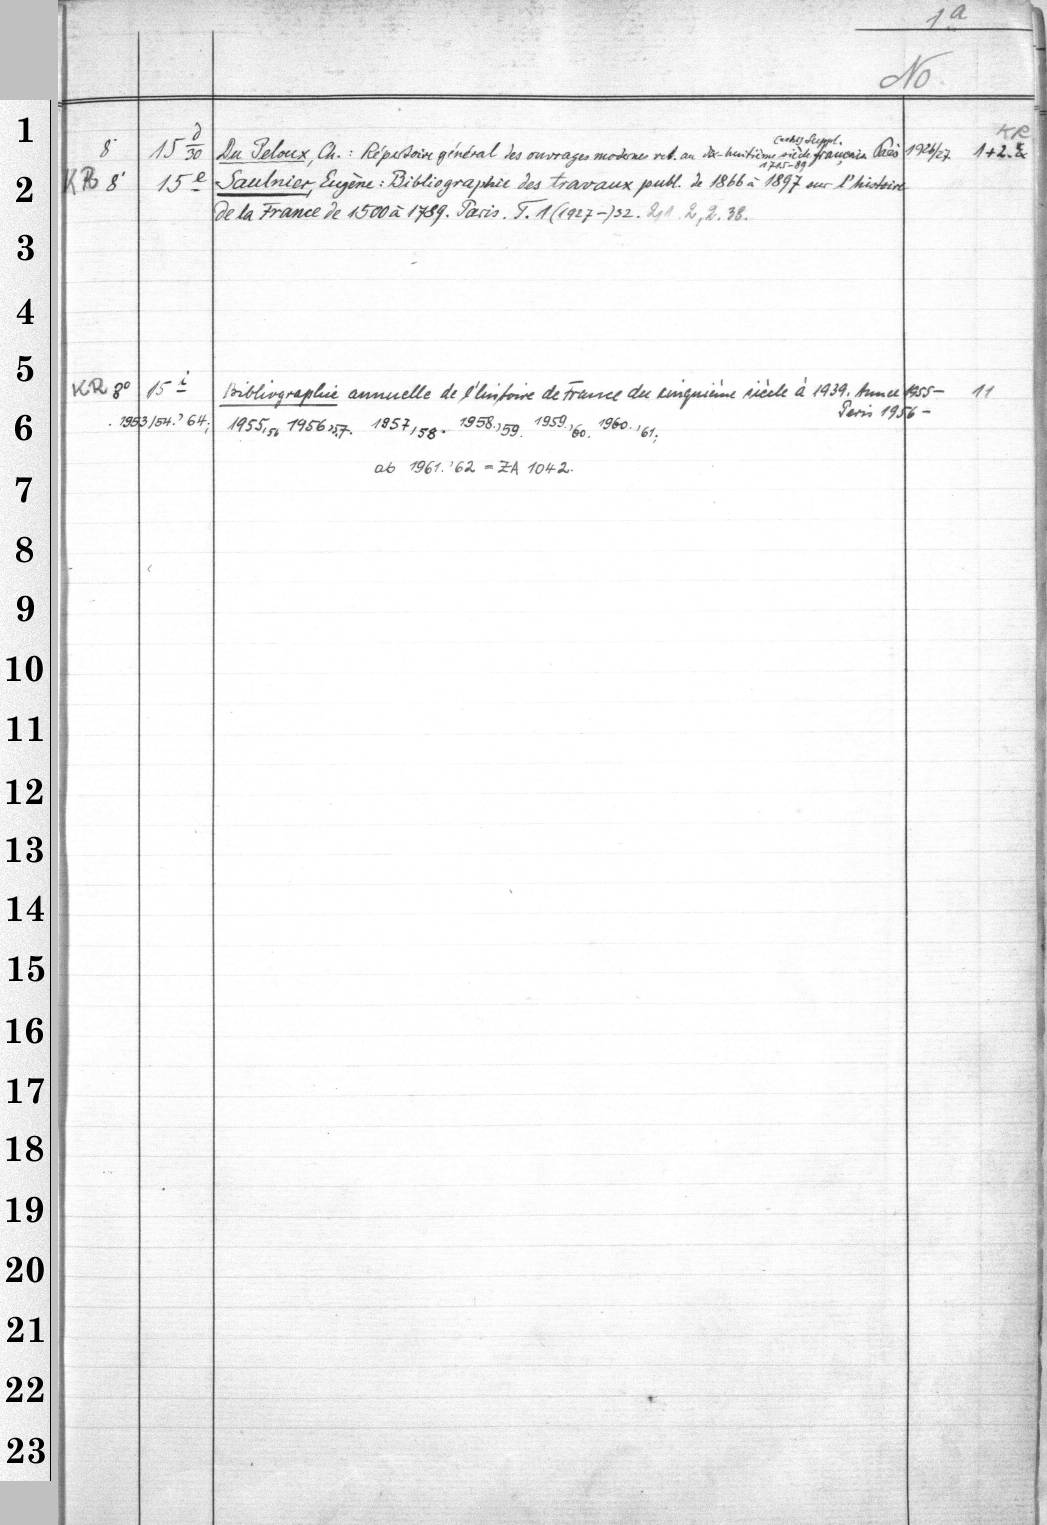 1a
No
1
8° 15 d/30 Du Peloux, Ch.: Répertoire général des ouvrages modernes rel. au dix-huitième siècle français 1715-89 Suppl. Paris 1926/27 1+2. KR
2
KR 8° 15 e Saulnier, Eugène: Bibliographie des travaux publ. de 1866 à 1897 sur l'histoire
de la France de 1500 à 1789. Paris. T. 1 (1927-)32. 2,1. 2,2. 38.
3
4
5
KR 8° 15 i Bibliographie annuelle de l'histoire de France du cinquième siècle à 1939. Année 1955- 11
Paris 1956-
6
1953/54. '64; 1955,56 1956,57. 1957,58. 1958,59. 1959,60. 1960,'61;
ab 1961.'62 = ZA 1042.
7
8
9
10
11
12
13
14
15
16
17
18
19
20
21
22
23